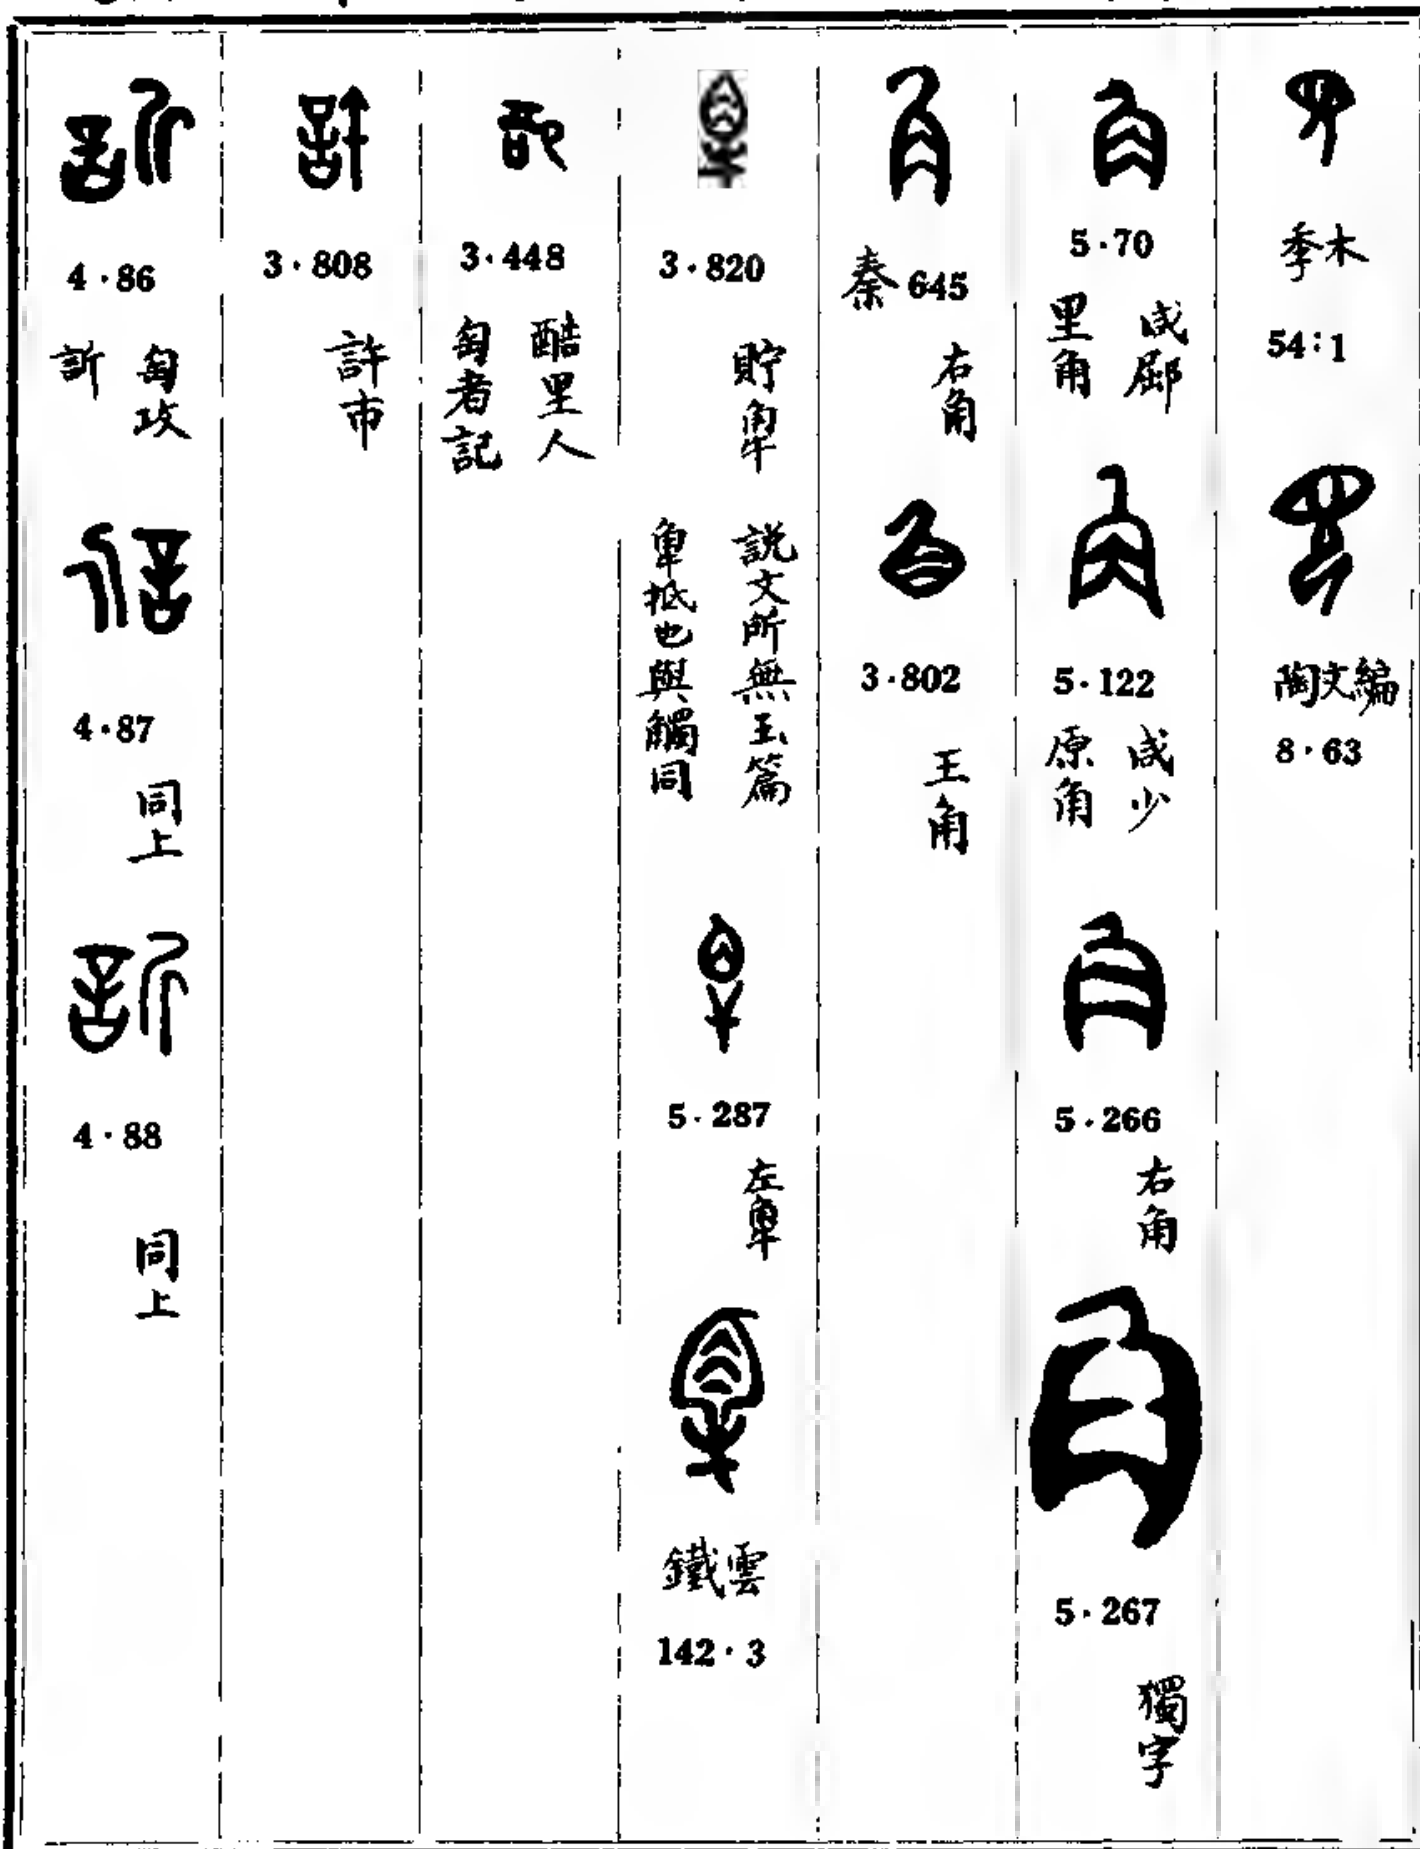 季木
54:1
陶文編
8·63
5·70
咸郿
里角
5·122
咸少
原角
5·266
右角
5·267
獨字
秦645
右角
3·802
王角
3·820
貯
説文所無玉篇
抵也與觸同
5·287
左
鐵雲
142·3
3·448
酷里人
匋者記
3·808
許市
4·86
匋攻
訢
4·87
同上
4·88
同上